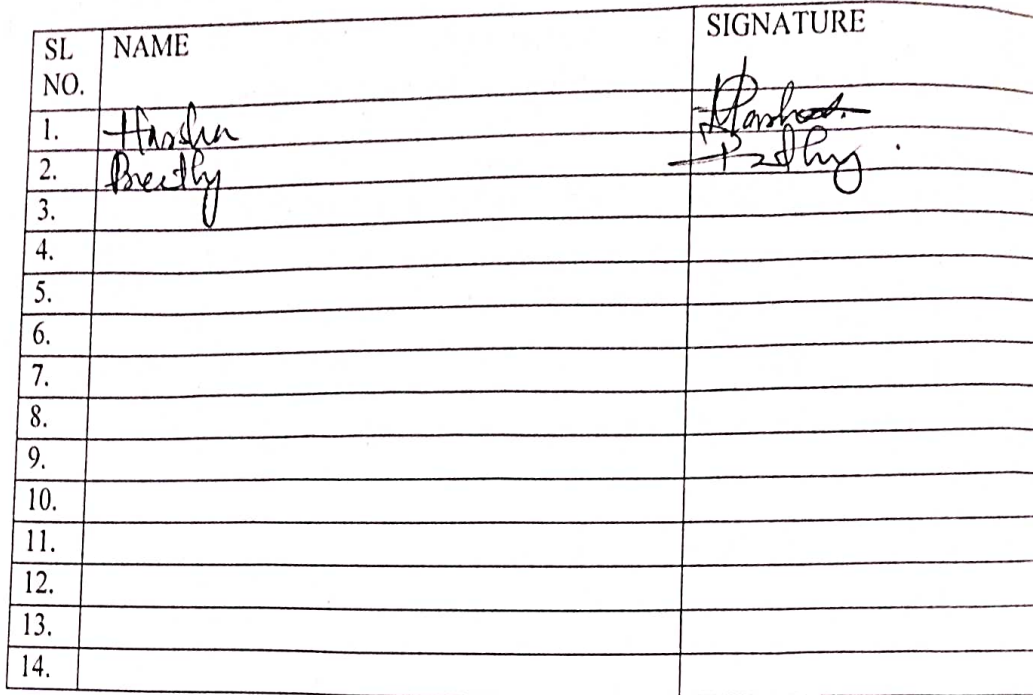 SL NO. NAME SIGNATURE
1. Harsha Harsha.
2. Preethy
3.
4.
5.
6.
7.
8.
9.
10.
11.
12.
13.
14.